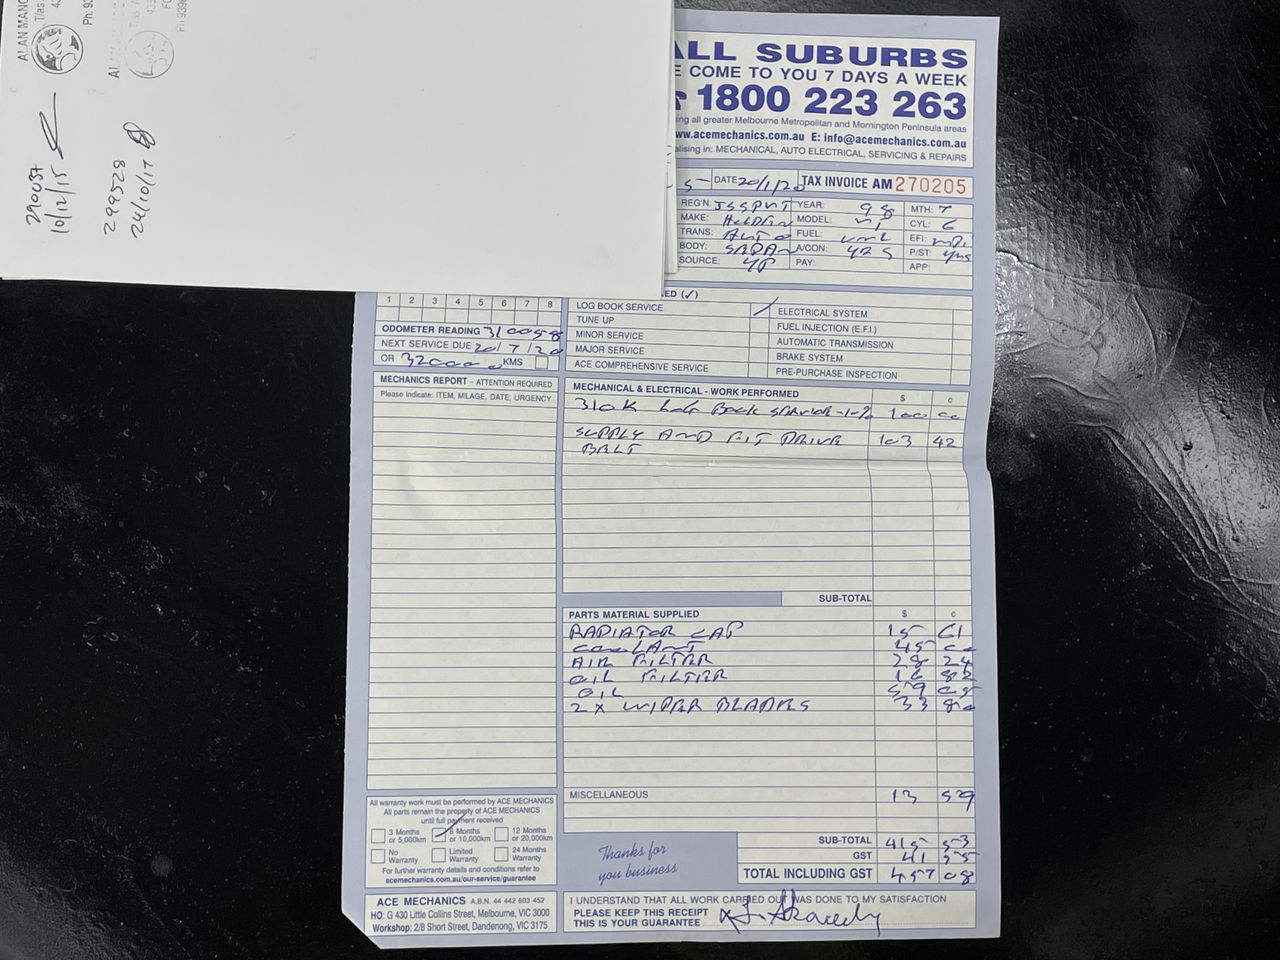 ALAN MANG
T/as
Ph: 93
290037
10/12/15
299528
24/10/17
ALL SUBURBS
E COME TO YOU 7 DAYS A WEEK
1800 223 263
ing all greater Melbourne Metropolitan and Mornington Peninsula areas
ww.acemechanics.com.au E: info@acemechanics.com.au
alising in: MECHANICAL, AUTO ELECTRICAL, SERVICING & REPAIRS
DATE 20/1/20 TAX INVOICE AM 270205
REG'N: YEAR: 98 MTH: 7
MAKE: HOLDEN MODEL: CYL: 6
TRANS: AUTO FUEL: EFI:
BODY: SEDAN A/CON: YES P/ST: YES
SOURCE: YP PAY: APP:
1 2 3 4 5 6 7 8
ED (✓)
LOG BOOK SERVICE ELECTRICAL SYSTEM
TUNE UP FUEL INJECTION (E.F.I.)
MINOR SERVICE AUTOMATIC TRANSMISSION
MAJOR SERVICE BRAKE SYSTEM
ACE COMPREHENSIVE SERVICE PRE-PURCHASE INSPECTION
ODOMETER READING 310058
NEXT SERVICE DUE 20/7/20
OR 320000 KMS
MECHANICS REPORT - ATTENTION REQUIRED
Please indicate: ITEM, MILAGE, DATE, URGENCY
MECHANICAL & ELECTRICAL - WORK PERFORMED $ c
310K LOG BOOK SERVICE 100 00
SUPPLY AND FIT DRIVE 103 42
BELT
SUB-TOTAL
PARTS MATERIAL SUPPLIED $ c
RADIATOR CAP 15 61
COOLANT 45 00
AIR FILTER 28 24
OIL FILTER 16 82
OIL 59 05
2 X WIPER BLADES 33 80
MISCELLANEOUS 13 59
SUB-TOTAL 415 53
GST 41 55
TOTAL INCLUDING GST 457 08
All warranty work must be performed by ACE MECHANICS
All parts remain the property of ACE MECHANICS
until full payment received
3 Months or 5,000km
6 Months or 10,000km
12 Months or 20,000km
No Warranty
Limited Warranty
24 Months Warranty
For further warranty details and conditions refer to
acemechanics.com.au/our-service/guarantee
Thanks for
you business
ACE MECHANICS A.B.N. 44 442 603 452
HO: G 430 Little Collins Street, Melbourne, VIC 3000
Workshop: 2/8 Short Street, Dandenong, VIC 3175
I UNDERSTAND THAT ALL WORK CARRIED OUT WAS DONE TO MY SATISFACTION
PLEASE KEEP THIS RECEIPT
THIS IS YOUR GUARANTEE